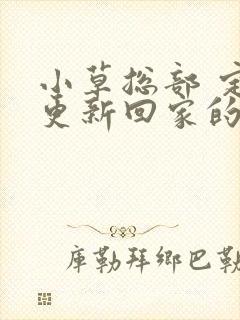 小草总部
更新回家的
库勒拜鄉巴勒